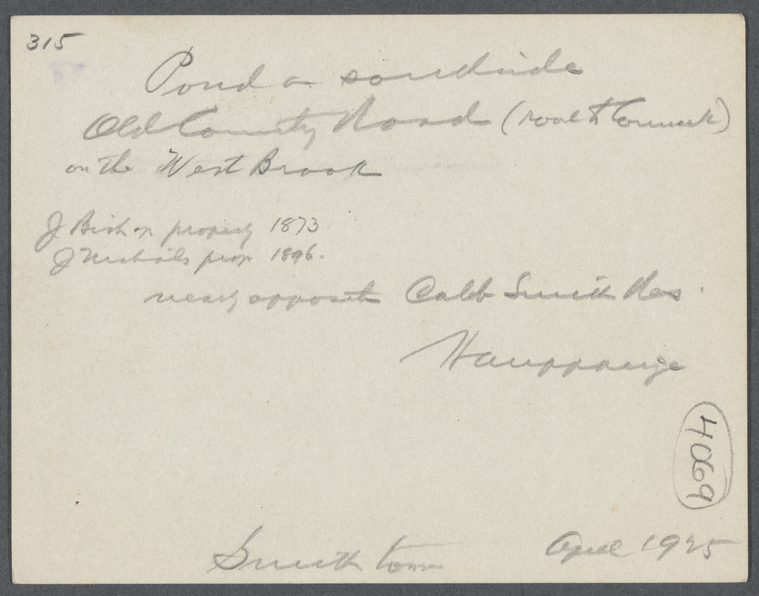 315
Pond on southside
Old County Road (road to Commack)
on the West Brook
J Bishop property 1873
J Nichols prop 1896.
nearly opposite Caleb Smith Res.
Hauppauge
4069
Smithtown April 1925